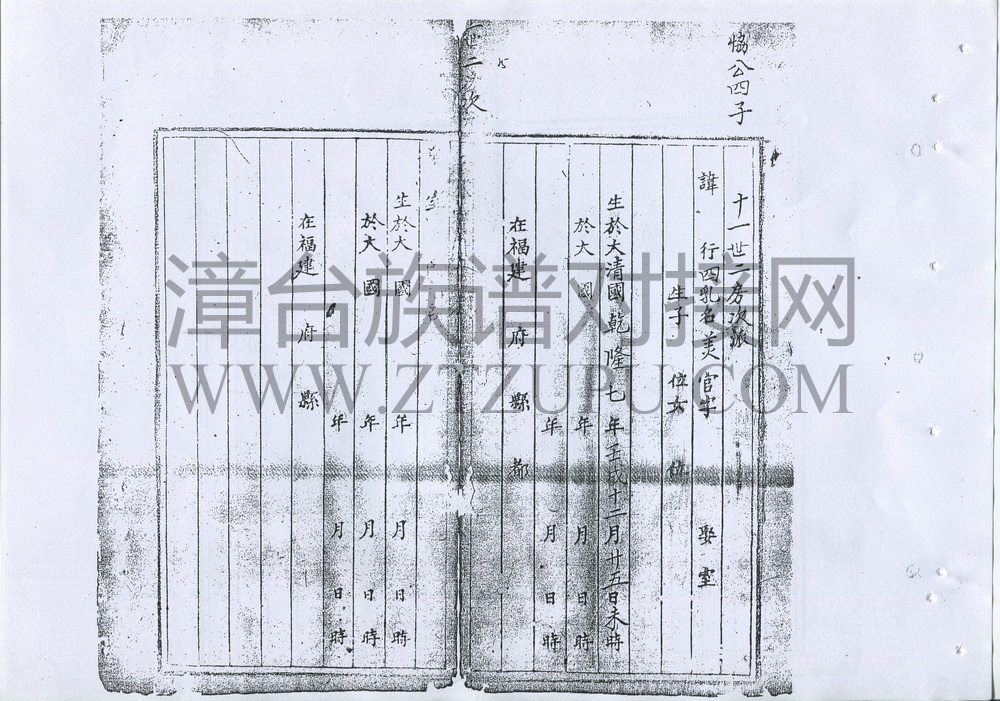 公四子
十一世二房次派
諱 行四乳名美官字 娶室
生子 位女 位
生於大清國乾隆七年壬戌十二月廿五日未時
於大 國 年 月 日時
年 月 日時
在福建 府 縣 都
二 次
生於大 國 年 月 日時
於大 國 年 月 日時
年 月 日時
在福建 府 縣
漳台族谱对接网
WWW.ZTZUPU.COM